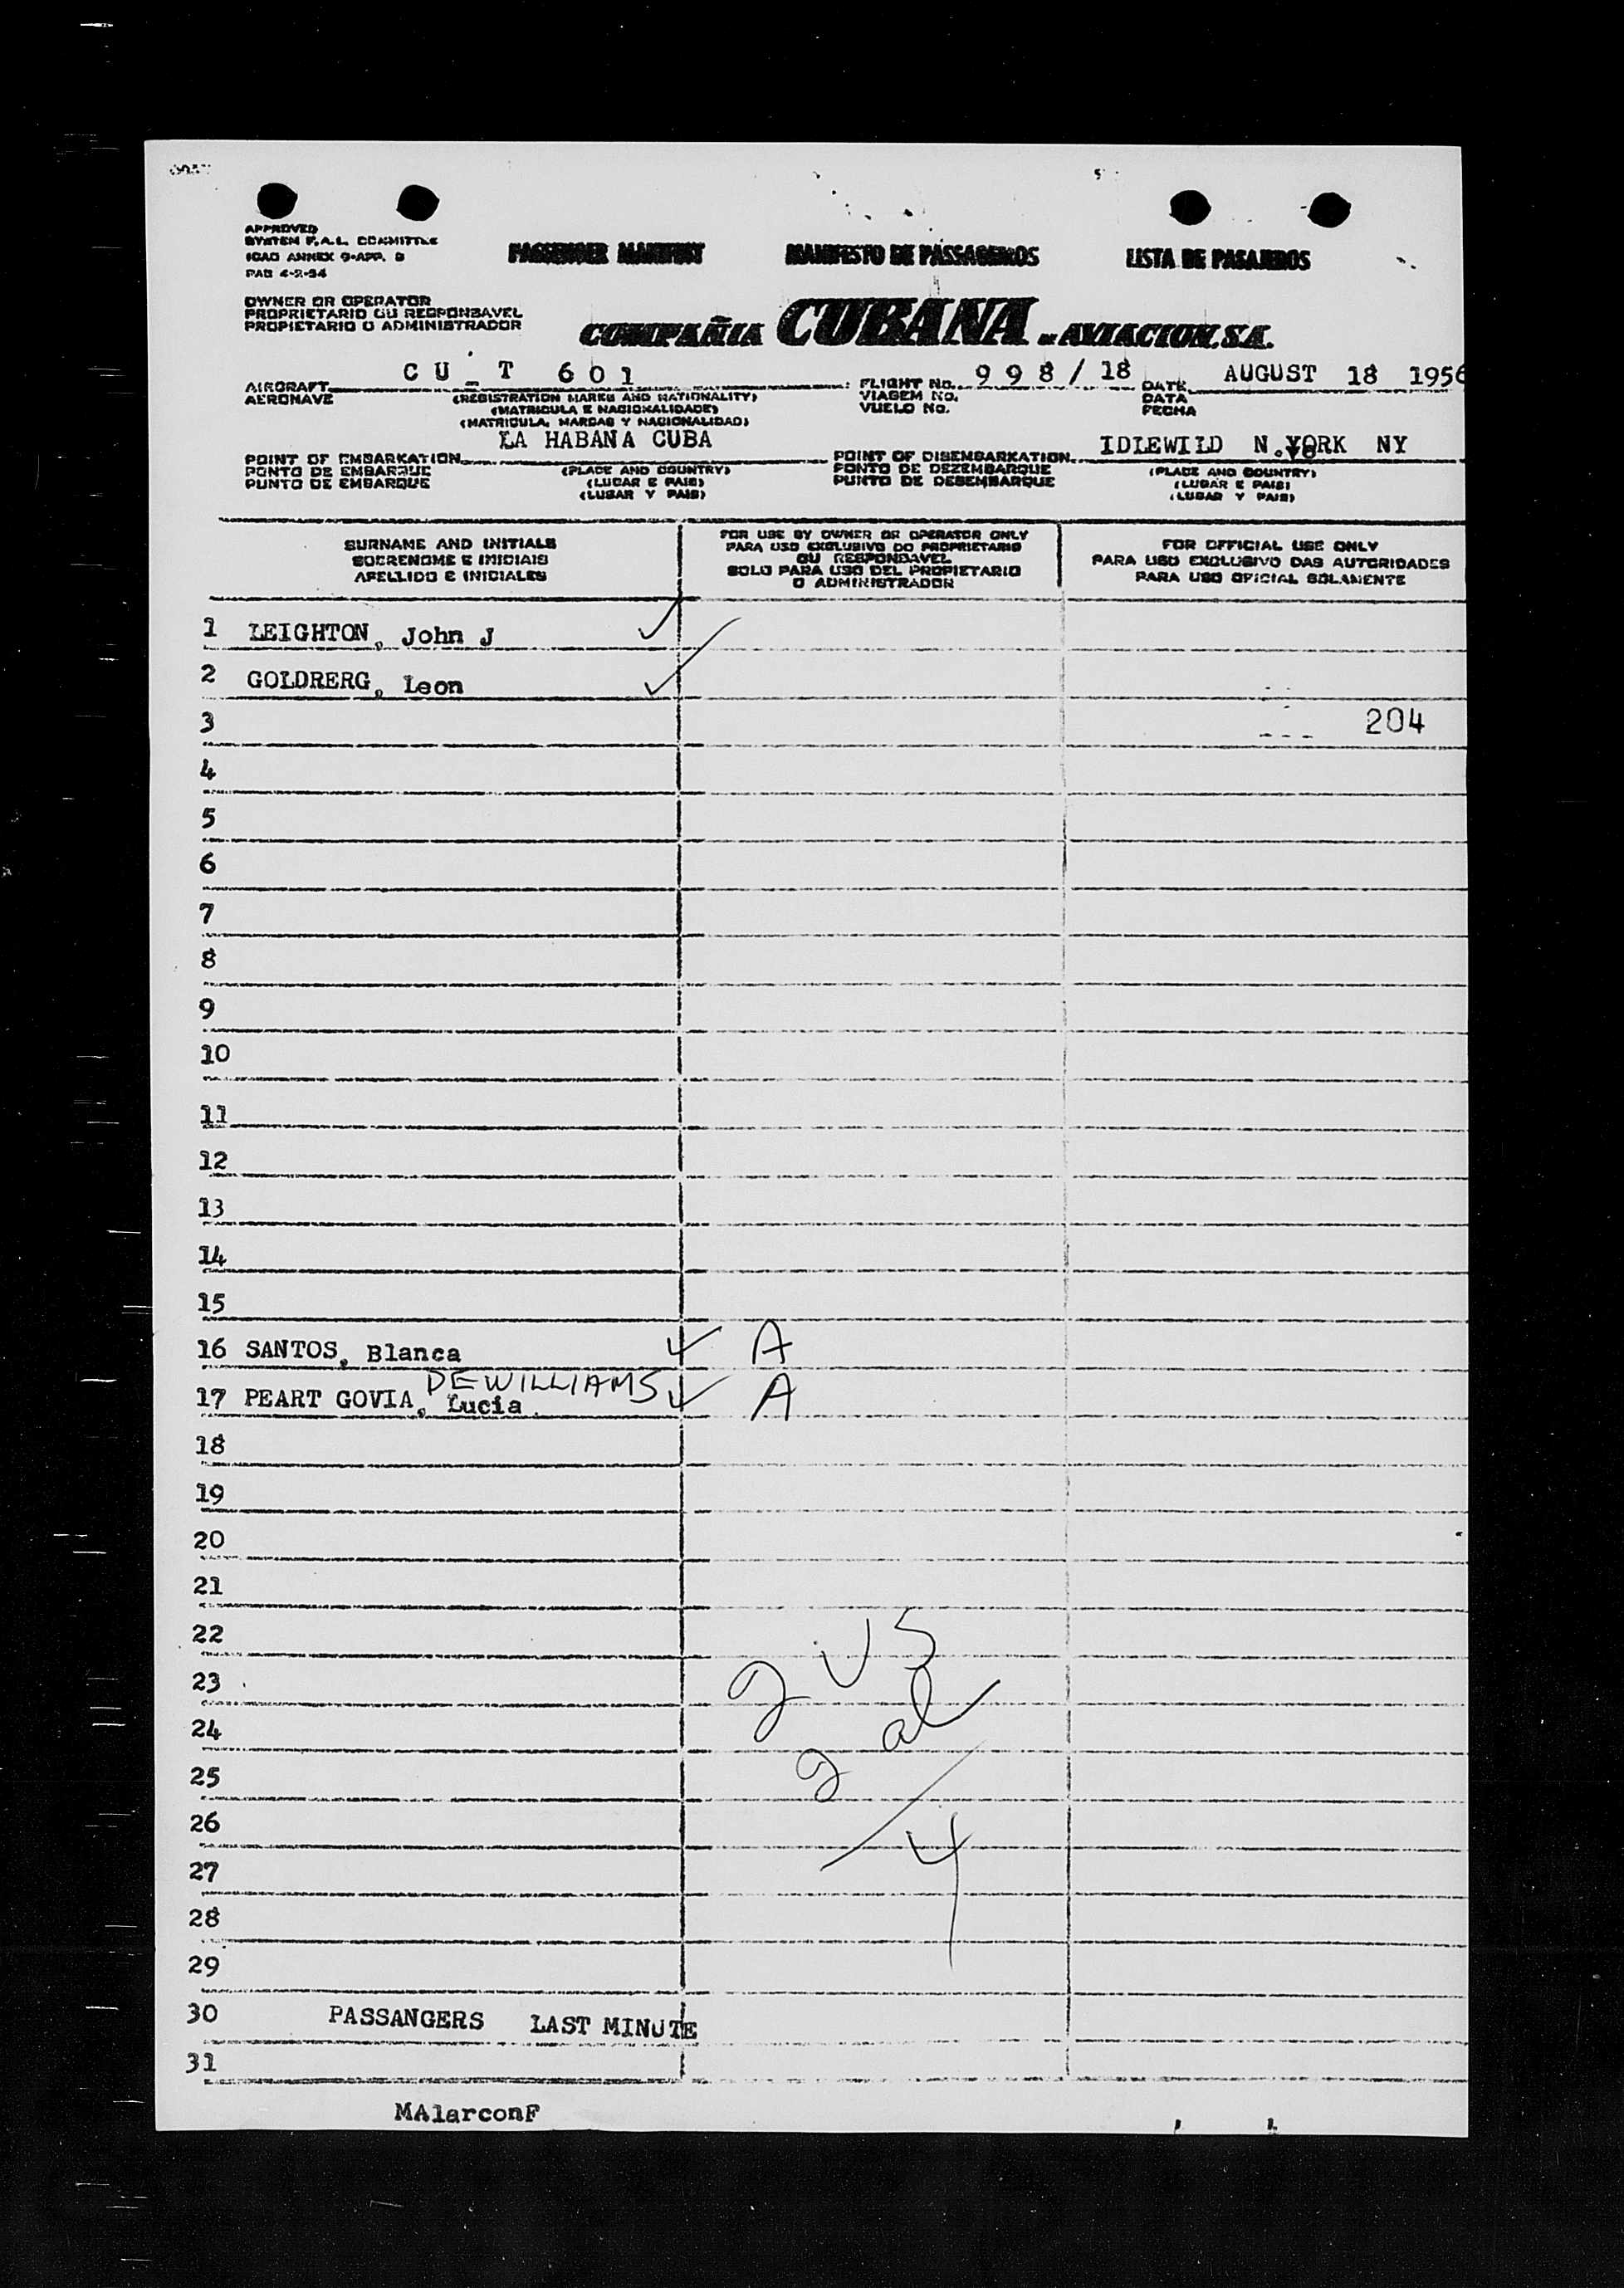 APPROVED
SYSTEM F.A.L. COMMITTEE
ICAO ANNEX 9-APP. 
PAB 4-2-54
PASSENGER MANIFEST MANIFESTO DE PASSAGEIROS LISTA DE PASAJEROS
OWNER OR OPERATOR
PROPRIETARIO OU RESPONSAVEL
PROPIETARIO O ADMINISTRADOR
COMPAÑIA CUBANA DE AVIACION, S.A.
AIRCRAFT CU-T 601 FLIGHT No. 998/18 DATE AUGUST 18 1956
AERONAVE (REGISTRATION MARKS AND NATIONALITY) VIAGEM No. DATA
(MATRICULA E NACIONALIDADE) VUELO No. FECHA
(MATRICULA, MARCAS Y NACIONALIDAD)
POINT OF EMBARKATION LA HABANA CUBA POINT OF DISEMBARKATION IDLEWILD N.YORK NY
PONTO DE EMBARQUE (PLACE AND COUNTRY) PONTO DE DEZEMBARQUE (PLACE AND COUNTRY)
PUNTO DE EMBARQUE (LUGAR E PAIS) PUNTO DE DESEMBARQUE (LUGAR E PAIS)
(LUGAR Y PAIS) (LUGAR Y PAIS)
SURNAME AND INITIALS
SOBRENOME E INICIAIS
APELLIDO E INICIALES
FOR USE BY OWNER OR OPERATOR ONLY
PARA USO EXCLUSIVO DO PROPRIETARIO
OU RESPONSAVEL
SOLO PARA USO DEL PROPIETARIO
O ADMINISTRADOR
FOR OFFICIAL USE ONLY
PARA USO EXCLUSIVO DAS AUTORIDADES
PARA USO OFICIAL SOLAMENTE
1 LEIGHTON, John J
2 GOLDRERG, Leon
3 204
4
5
6
7
8
9
10
11
12
13
14
15
16 SANTOS, Blanca A
DEWILLIAMS
17 PEART GOVIA, Lucia A
18
19
20
21
22
23 2 US
24
25 2 al
26
27 4
28
29
30 PASSANGERS LAST MINUTE
31
MAlarconF